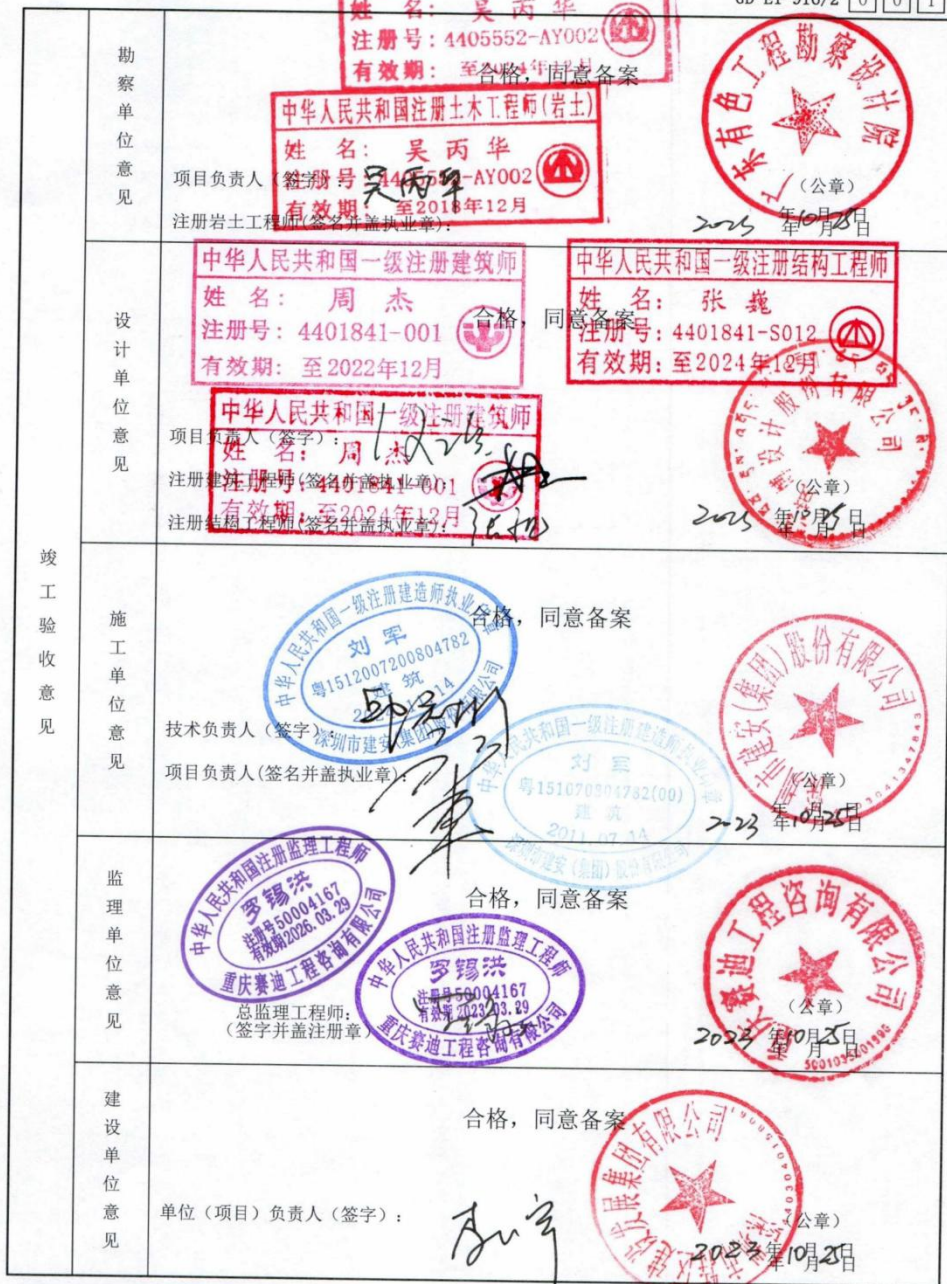 GD-E1-916/2 0 0 1
竣工验收意见
勘察单位意见
姓 名: 吴丙华
注册号: 4405552-AY002
有效期: 至2024年12月
合格，同意备案
中华人民共和国注册土木工程师(岩土)
姓 名: 吴丙华
注册号: 4405552-AY002
有效期: 至2018年12月
项目负责人（签字）: 吴丙华
注册岩土工程师(签名并盖执业章):
广东有色工程勘察设计院
（公章）
年10月25日
年 月 日
设计单位意见
中华人民共和国一级注册建筑师
姓 名: 周 杰
注册号: 4401841-001
有效期: 至2022年12月
合格，同意备案
中华人民共和国一级注册结构工程师
姓 名: 张 巍
注册号: 4401841-S012
有效期: 至2024年12月
中华人民共和国一级注册建筑师
姓 名: 周 杰
注册号: 4401841-001
有效期: 至2024年12月
项目负责人（签字）:
注册建筑工程师(签名并盖执业章):
注册结构工程师(签名并盖执业章):
设计股份有限公司
（公章）
年 月 日
施工单位意见
中华人民共和国一级注册建造师执业印章
刘 军
粤1512007200804782
建 筑
深圳市建安(集团)股份有限公司
合格，同意备案
技术负责人（签字）:
项目负责人(签名并盖执业章):
中华人民共和国一级注册建造师执业印章
刘 军
粤151070804782(00)
建 筑
2011.07.14
深圳市建安（集团）股份有限公司
市建安(集团)股份有限公司
（公章）
2023 年10月25日
年 月 日
监理单位意见
中华人民共和国注册监理工程师
罗锡洪
注册号50004167
有效期2026.03.29
重庆赛迪工程咨询有限公司
合格，同意备案
中华人民共和国注册监理工程师
罗锡洪
注册号50004167
有效期2023.03.29
重庆赛迪工程咨询有限公司
总监理工程师:
（签字并盖注册章）
重庆赛迪工程咨询有限公司
（公章）
2023 年10月25日
年 月 日
建设单位意见
合格，同意备案
单位（项目）负责人（签字）:
建设发展集团有限公司
（公章）
2023 年10月25日
年 月 日